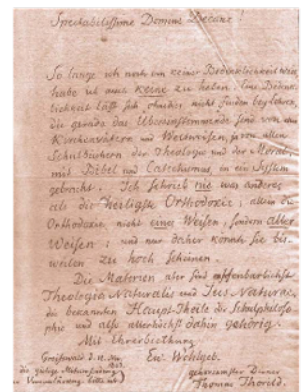 Spectabilissime Domine Decane!
So lange ich noch von keiner Bedenklichkeit weiß
habe ich auch keine zu heben. Eine Bedenk-
lichkeit läßt sich nicht finden bey Lehren,
die gerade das Übereinstimmende sind von
Kirchenvätern und Weltweisen, ja von allen
Schulbüchern der Theologie und der Moral,
mit Bibel und Catechismus, in ein System
gebracht. Ich schrieb nie was anders
als die heiligste Orthodoxie; allein die
Orthodoxie nicht eines Weisen, sondern aller
Weisen; und nur daher konnte sie bis-
weilen zu hoch scheinen.
Die Materien aber sind offenbarlichst
Theologia Naturalis und Jus Naturae,
die bekannten Haupt-Theile der Schulphiloso-
phie und also allerhöchst dahin gehörig.
Mit Ehrerbietung
Ew. Wohlgeb.
Greifswald d.
gehorsamster Diener
Thomas Thorild